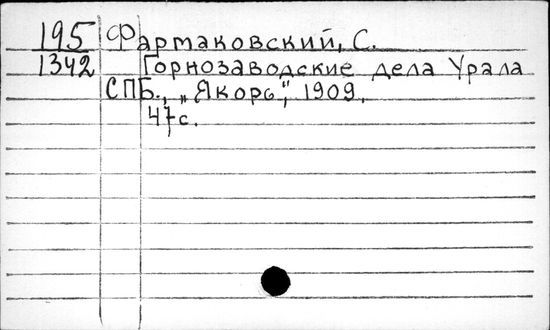 195 Фармаковский, С.
1342 Горнозаводские дела Урала
СПБ., „Якорь", 1909.
47с.